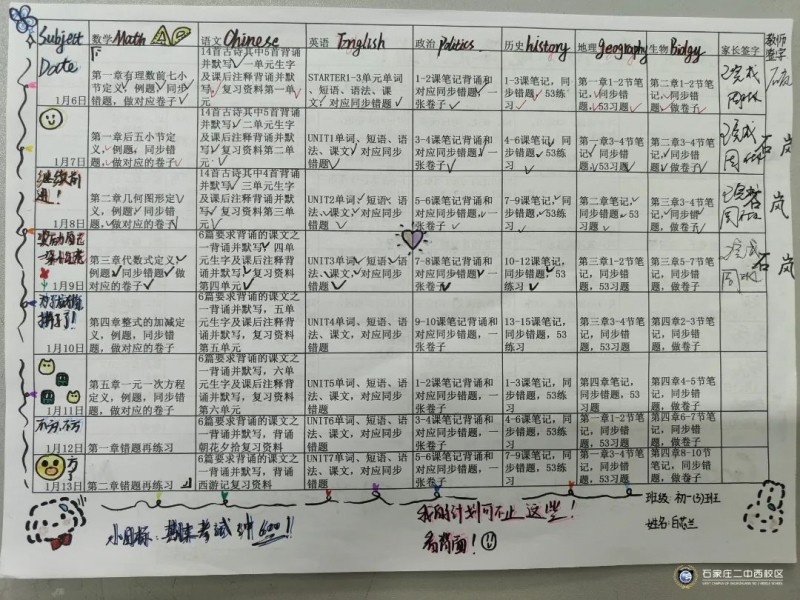 Subject 数学 Math 语文 Chinese 英语 English 政治 Politics 历史 history 地理 geography 生物 Biology 家长签字 教师签字
Date
第一章有理数前七小节定义,例题,同步错题,做对应卷子
14首古诗其中5首背诵并默写,一单元生字及课后注释背诵并默写,复习资料第一单元
STARTER1-3单元单词、短语、语法、课文,对应同步错题
1-2课笔记背诵和对应同步错题,一张卷子
1-3课笔记,同步错题,53练习
第一章1-2节笔记,同步错题,53习题
第二章1-2节笔记,同步错题,做卷子
1月6日
第一章后五小节定义,例题,同步错题,做对应的卷子
14首古诗其中5首背诵并默写,二单元生字及课后注释背诵并默写,复习资料第二单元
UNIT1单词、短语、语法、课文,对应同步错题
3-4课笔记背诵和对应同步错题,一张卷子
4-6课笔记,同步错题,53练习
第一章3-4节笔记,同步错题,53习题
第二章3-4节笔记,同步错题,做卷子
石岚
1月7日
第二章几何图形定义,例题,同步错题,做对应的卷子
14首古诗其中4首背诵并默写,三单元生字及课后注释背诵并默写,复习资料第三单元
UNIT2单词、短语、语法、课文,对应同步错题
5-6课笔记背诵和对应同步错题,一张卷子
7-9课笔记,同步错题,53练习
第二章笔记,同步错题,53习题
第三章3-4节笔记,同步错题,做卷子
1月8日
第三章代数式定义,例题,同步错题,做对应的卷子
6篇要求背诵的课文之一背诵并默写,四单元生字及课后注释背诵并默写,复习资料第四单元
UNIT3单词、短语、语法、课文,对应同步错题
7-8课笔记背诵和对应同步错题,一张卷子
10-12课笔记,同步错题,53练习
第三章1-2节笔记,同步错题,53习题
第三章5-7节笔记,同步错题,做卷子
石岚
1月9日
第四章整式的加减定义,例题,同步错题,做对应的卷子
6篇要求背诵的课文之一背诵并默写,五单元生字及课后注释背诵并默写,复习资料第五单元
UNIT4单词、短语、语法、课文,对应同步错题
9-10课笔记背诵和对应同步错题,一张卷子
13-15课笔记,同步错题,53练习
第三章3-4节笔记,同步错题,53习题
第四章2-3节笔记,同步错题,做卷子
1月10日
第五章一元一次方程定义,例题,同步错题,做对应的卷子
6篇要求背诵的课文之一背诵并默写,六单元生字及课后注释背诵并默写,复习资料第六单元
UNIT5单词、短语、语法、课文,对应同步错题
1-2课笔记背诵和对应同步错题,一张卷子
1-3课笔记,同步错题,53练习
第四章笔记,同步错题,53习题
第四章4-5节笔记,同步错题,做卷子
1月11日
第一章错题再练习
6篇要求背诵的课文之一背诵并默写,背诵朝花夕拾复习资料
UNIT6单词、短语、语法、课文,对应同步错题
3-4课笔记背诵和对应同步错题,一张卷子
4-6课笔记,同步错题,53练习
第一章1-2节笔记,同步错题,53习题
第四章6-7节笔记,同步错题,做卷子
1月12日
第二章错题再练习
6篇要求背诵的课文之一背诵并默写,背诵西游记复习资料
UNIT7单词、短语、语法、课文,对应同步错题
5-6课笔记背诵和对应同步错题,一张卷子
7-9课笔记,同步错题,53练习
第一章3-4节笔记,同步错题,53习题
第四章8-10节笔记,同步错题,做卷子
1月13日
小目标:期末考试冲600!!
我的计划可不止这些!
看背面!
班级:初一(3)班
姓名:白芯兰
石家庄二中西校区